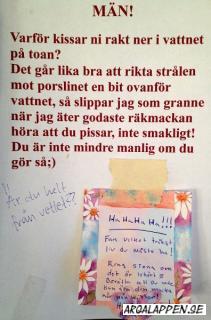 MÄN!
Varför kissar ni rakt ner i vattnet
på toan?
Det går lika bra att rikta strålen
mot porslinet en bit ovanför
vattnet, så slipper jag som granne
när jag äter godaste räkmackan
höra att du pissar, inte smakligt!
Du är inte mindre manlig om du
gör så;)
!!
Är du helt
från vettet?
HaHaHaHa!!!
Fan vilket tråkigt
liv du måste ha!
Ring
det är
ARGALAPPEN.SE